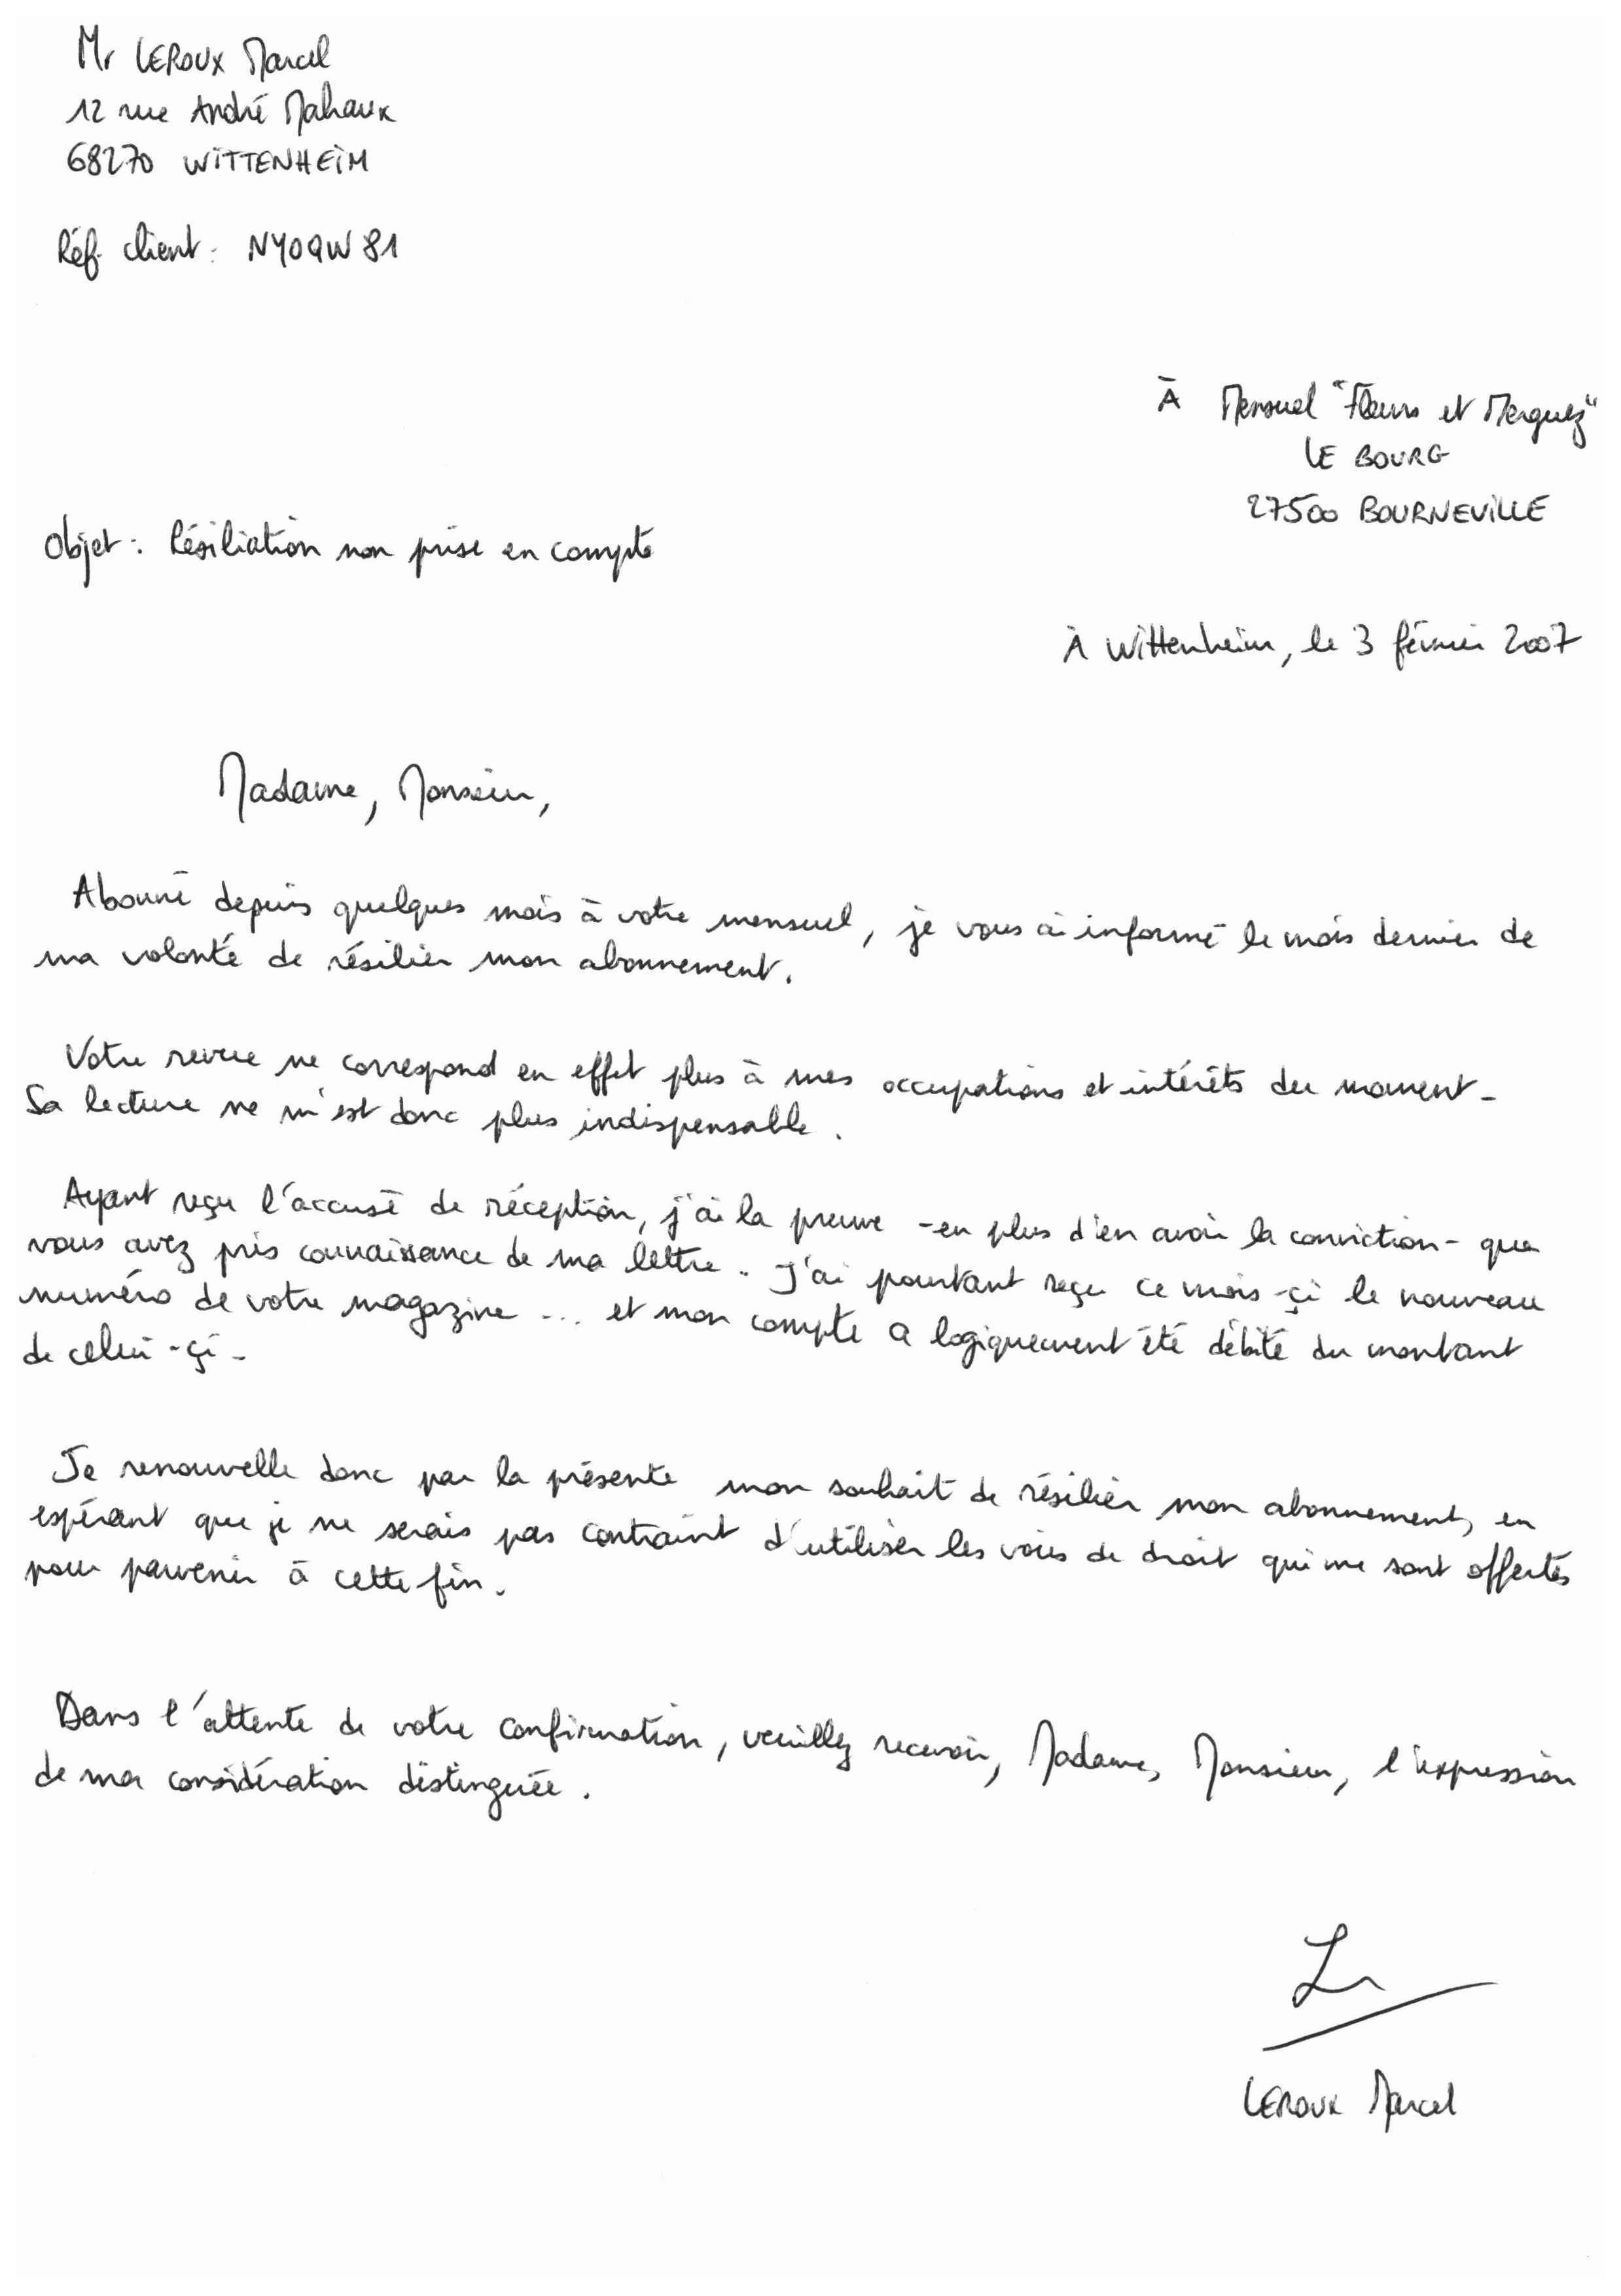 Mr LEROUX Marcel
12 rue André Mahaux
68270 WITTENHEIM
Réf. client : NYOQW81
À Mensuel "Fleurs et Merguez"
LE BOURG
27500 BOURNEVILLE
Objet : Résiliation non prise en compte
À Wittenheim, le 3 février 2007
Madame, Monsieur,
Abonné depuis quelques mois à votre mensuel, je vous ai informé le mois dernier de
ma volonté de résilier mon abonnement.
Votre revue ne correspond en effet plus à mes occupations et intérêts du moment.
Sa lecture ne m'est donc plus indispensable.
Ayant reçu l'accusé de réception, j'ai la preuve - en plus d'en avoir la conviction - que
vous avez pris connaissance de ma lettre. J'ai pourtant reçu ce mois-çi le nouveau
numéro de votre magazine ... et mon compte a logiquement été débité du montant
de celui-çi.
Je renouvelle donc par la présente mon souhait de résilier mon abonnement, en
espérant que je ne serais pas contraint d'utiliser les voies de droit qui me sont offertes
pour parvenir à cette fin.
Dans l'attente de votre confirmation, veuillez recevoir, Madame, Monsieur, l'expression
de ma considération distinguée.
LEROUX Marcel